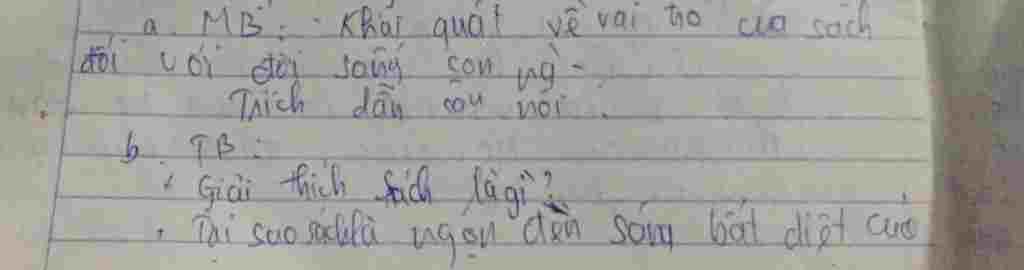 a. MB: - Khái quát về vai trò của sách
đối với đời sống con ng-
Trích dẫn câu nói.
b. TB:
+ Giải thích sách là gì?
+ Tại sao sách là ngọn đèn sáng bất diệt của